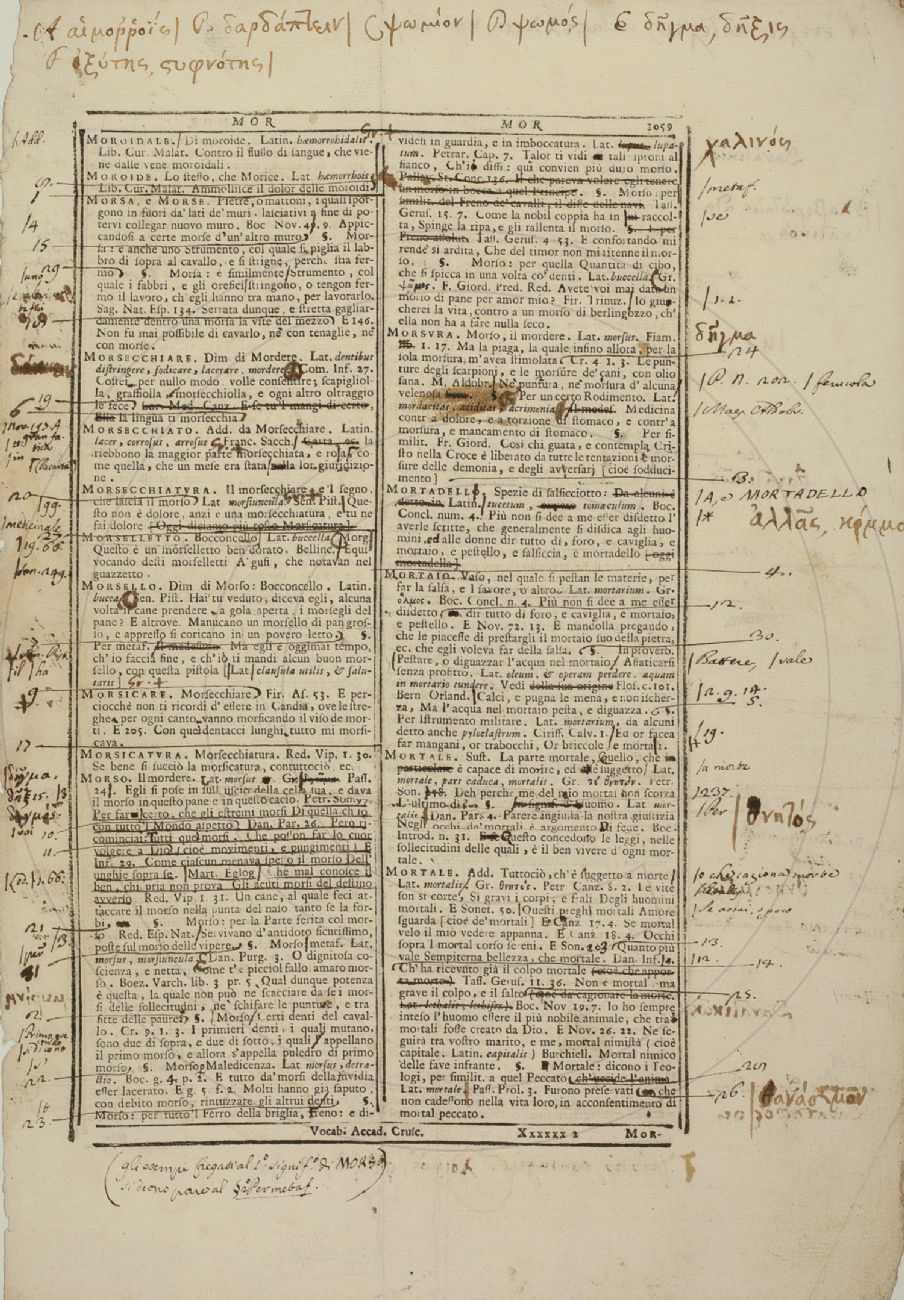 A αἱμορροΐς| B δαρδάπτειν| C ψωμίον| D ψωμός| E δῆγμα, δῆξις
ὀξύτης, στυφνότης|
MOR MOR 1059
MOROIDALE. Di moroide. Latin. hæmorrhoidalis.
Lib. Cur. Malat. Contro il flusso di sangue, che vie-
ne dalle vene moroidali.
MOROIDE. Lo stesso, che Morice. Lat. hæmorrhois
Lib. Cur. Malat. Ammollisce il dolor delle moroidi.
MORSA, e MORSE. Pietre, o mattoni, i quali spor-
gono in fuori da' lati de' muri. lasciativi a fine di po-
tervi collegar nuovo muro. Boc Nov. 4. 9. Appic-
candosi a certe morse d'un'altro muro §. Mor-
sa: è anche uno Strumento, col quale si piglia il lab-
bro di sopra al cavallo, e si strigne, perchè stia fer-
mo §. Morsa: è similmente Strumento, col
quale i fabbri, e gli orefici stringono, o tengon fer-
mo il lavoro, ch'egli hanno tra mano, per lavorarlo.
Sag. Nat. Esp. 134. Serrata dunque, e stretta gagliar-
damente dentro una morsa la vite del mezzo E 146.
Non fu mai possibile di cavarlo, nè con tenaglie, nè
con morse.
MORSECCHIARE. Dim di Mordere. Lat. dentibus
distringere, fodicare, lacerare, mordere Com. Inf. 27.
Costei per nullo modo volle consentire; scapigliol-
la, graffiolla morsecchiolla, e ogni altro oltraggio
le fece Lor. Med. Canz. E se tu 'l mangi di certo,
la lingua ti morsecchia
MORSECCHIATO. Add. da Morsecchiare. Latin.
lacer, corrosus, arrosus Franc. Sacch. Carta, ec. la
riebbono la maggior parte morsecchiata, e rosa, co-
me quella, che un mese era stata alla lor giurisdizio-
ne.
MORSECCHIATURA. Il morsecchiare, e 'l segno,
che lascia il morso Lat morsiuncula Sen. Pist. Que-
sto non è dolore, anzi è una morsecchiatura, e tu ne
fai dolore [Oggi diciamo più tosto Morsicatura]
MORSELLETTO. Bocconcello Lat. buccella Morg.
Questo è un morselletto ben dorato. Bellinc. Equi
vocando desti morselletti A gusi, che notavan nel
guazzetto.
MORSELLO. Dim di Morso: Bocconcello. Latin.
buccea Sen. Pist. Hai tu veduto, diceva egli, alcuna
volta il cane prendere a gola aperta, i morsegli del
pane? E altrove. Manucano un morsello di pan gros-
so, e appresso si coricano in un povero letto §.
Per metaf. il medesimo. Ma egli è oggimai tempo,
ch'io faccia fine, e ch'io ti mandi alcun buon mor-
sello, con questa pistola [Lat clausula utilis, & salu-
taris]
MORSICARE. Morsecchiare Fir. As. 53. E per-
ciocchè non ti ricordi d'essere in Candia, ove le stre-
ghe, per ogni canto, vanno morsicando il viso de' mor-
ti. E 205. Con que' dentacci lunghi, tutto mi morsi-
cava.
MORSICATURA. Morsecchiatura. Red. Vip. 1. 30.
Se bene si succiò la morsicatura, contuttociò, ec.
MORSO. Il mordere. Lat. morsus Gr. Pass.
24. Egli si pose in sull'uscio della cella sua, e dava
il morso in questo pane e in questo cacio. Petr. Son. 97.
Per far incerto, che gli estremi morsi Di quella ch'io
con tutto 'l Mondo aspetto Dan. Par. 26. Però ri-
cominciai: Tutti quei morsi, Che posson far lo cuor
volgere a Dio [cioè movimenti, e pungimenti] E
Inf. 29. Come ciascun menava spesso il morso Dell'
unghie sopra se. [Mart. Eglog. Che mal conosce il
ben, chi pria non prova Gli acuti morsi del destino
avverso. Red. Vip. 1. 31. Un cane, al quale feci at-
taccare il morso nella punta del naso, tanto se la for-
bì, §. Morso: per la Parte ferita col mor-
so. Red. Esp. Nat. Servivano d'antidoto sicurissimo,
poste sul morso delle vipere §. Morso metaf. Lat.
morsus, morsiuncula Dan. Purg. 3. O dignitosa co-
scienza, e netta, Come t'è picciol fallo amaro mor-
so. Boez. Varch. lib. 3 pr. 5. Qual dunque potenza
è questa, la quale non può ne scacciare da se i mor-
si delle sollecitudini, ne' schifare le punture, e tra
fitte delle paure? §. Morso Certi denti del caval-
lo. Cr. 9. 1. 3. I primieri denti, i quali mutano,
sono due di sopra, e due di sotto, i quali s'appellano
il primo morso, e allora s'appella puledro di primo
morso, §. Morso Maledicenza. Lat morsus, detra-
ctio. Boc. g. 4. p. 8. E tutto da' morsi della 'nvidia
esser lacerato. E g. 5 f. 2. Molti hanno già saputo,
con debito morso, rintuzzare gli altrui denti. §.
Morso: per tutto 'l Ferro della briglia, Freno: e di-
videsi in guardia, e in imboccatura. Lat. lupus, lupa-
tum. Petrar. Cap. 7. Talor ti vidi tali sproni al
fianco, Ch'io dissi: qui convien più duro morso.
Pallav. St. Conc. 136. Il che pareva volere egli tenere
un morso in bocca a quel Principe. §. Morso: per
similit. del Freno de' cavalli, il disse delle navi. Tass.
Gerus. 15. 7. Come la nobil coppia ha in se raccol-
ta, Spinge la ripa, e gli rallenta il morso. §. E per
Freno assolut. Tass. Gerus. 4 53. E confortando mi
rende sì ardita, Che del timor non mi ritenne il mor-
so. §. Morso: per quella Quantità di cibo,
che si spicca in una volta co' denti. Lat. buccella Gr.
ψωμός. F. Giord. Pred. Red. Avete voi mai dato un
morso di pane per amor mio? Fir. Trinuz. Io giu-
cherei la vita, contro a un morso di berlingozzo, ch'
ella non ha a fare nulla seco.
MORSVRA. Morso, il mordere. Lat. morsus. Fiam.
1. 17. Ma la piaga, la quale infino allora, per la
sola morsura, m'avea stimolata Cr. 4 1. 3. Le pun-
ture degli scarpioni, e le morsure de' cani, con olio
sana. M. Aldobr. Nè puntura, nè morsura d'alcuna
velenosa §. Per un certo Rodimento. Lat.
mordacitas, aciditas, acrimonia Il moisel. Medicina
contr a dolore, e a torzione di stomaco, e contr'a
morsura, e mancamento di stomaco. §. Per si-
milit. Fr. Giord. Così chi guata, e contempla Cri-
sto nella Croce è liberato da tutte le tentazioni e mor-
sure delle demonia, e degli avversarj [cioè sodduci-
mento]
MORTADELLO. Spezie di salsicciotto: Da alcuni è
detto in Latin. tucetum, tomaculum. Boc.
Concl. num. 4. Più non si dee a me esser disdetto l'
averle scritte, che generalmente si disdica agli huo-
mini, ed alle donne dir tutto dì, foro, e caviglia, e
mortaio, e pestello, e salsiccia, e mortadello [oggi
mortadella]
MORTAIO. Vaso, nel quale si pestan le materie, per
far la salsa, e 'l savore, o altro. Lat. mortarium. Gr.
ὅλμος. Boc. Concl. n. 4. Più non si dee a me esser
disdetto dir tutto dì, foro, e caviglia, e mortaio,
e pestello. E Nov. 72. 13. E mandolla pregando,
che le piacesse di prestargli il mortaio suo della pietra,
ec. che egli voleva far della salsa. §. In proverb.
Pestare, o diguazzar l'acqua nel mortaio Affaticarsi
senza profitto. Lat. oleum, & operam perdere. aquam
in mortario tundere. Vedi della sua origine Flos. c. 101.
Bern Orland. Calci, e pugna le mena, e non ischer-
za, Ma l'acqua nel mortaio pesta, e diguazza. §.
Per Istrumento militare. Lat. mortarium, da alcuni
detto anche pyloclastrum. Ciriff. Calv. 1. Ed or facea
far mangani, or trabocchi, Or briccole e mortai.
MORTALE. Sust. La parte mortale, Quello, che in
particolare è capace di morire, ed è suggetto Lat.
mortale, pars caduca, mortalis. Gr. Petr.
Son. Deh perchè me del mio mortal non scorza
L'ultimo dì §. In signif. d'huomo. Lat mor-
talis. Dan. Par. 4. Parere ingiusta la nostra giustizia
Negli occhi de' mortali è argomento Di fede. Boc.
Introd. n. 31. Questo concedono le leggi, nelle
sollecitudini delle quali, è il ben vivere d'ogni mor-
tale.
MORTALE. Add. Tuttociò, ch'è suggetto a morte
Lat. mortalis. Gr. θνητός. Petr Canz. 8. 2. Le vite
son sì corte, Sì gravi i corpi, e frali Degli huomini
mortali. E Sonet. 50. Questi preghi mortali Amore
sguarda [cioè de' mortali] E Canz 17. 4. Se mortal
velo il mio vedere appanna. E Canz 18. 4. Occhi
sopra 'l mortal corso sereni. E Son. 203 Quanto più
vale Sempiterna bellezza, che mortale. Dan. Inf.
Ch'ha ricevuto già il colpo mortale [cioè che appor-
ta morte] Tass. Gerus. 11. 36. Non è mortal ma
grave il colpo, e il salto [cioè da cagionare la morte.
Lat. lethalis, lethifer] Boc. Nov. 19. 7. Io ho sempre
inteso l'huomo essere il più nobile animale, che tra
mortali fosse creato da Dio. E Nov. 26. 22. Nè se-
guirà tra vostro marito, e me, mortal nimistà [cioè
capitale. Latin. capitalis] Burchiell. Mortal nimico
delle fave infrante. §. Mortale: dicono i Teo-
logi, per similit. a quel Peccato, ch'uccide l'anima.
Lat. mortale. Pass. Prol. 3. Furono preservati che
non cadessono nella vita loro, in acconsentimento di
mortal peccato.
Vocab. Accad. Crusc. Xxxxxx 2 MOR-
(gli esempi fregati al 1º signif.º di MORSO
si dicono porre al § Per metaf.
χαλινός
|metaf.
|se
|1. 2.
δῆγμα
24
13.
|A, o MORTADELLO
ἀλλᾶς,
4.
12.
30.
|Battere, |vale
|2. 9. 14
5.
|19.
|237.
|Per θνητός
13.
|12. 14.
25.
26.
θανάσιμον
|Add.
14
15
29
19
6
20
199.
|medicinale
9
17
δῆγμα,
10.
11.
21
22
23